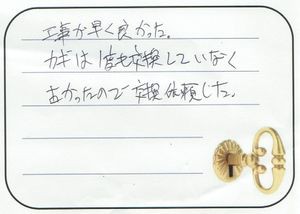 工事が早く良かった。
カギは1度も交換していなく
古かったので交換依頼した。